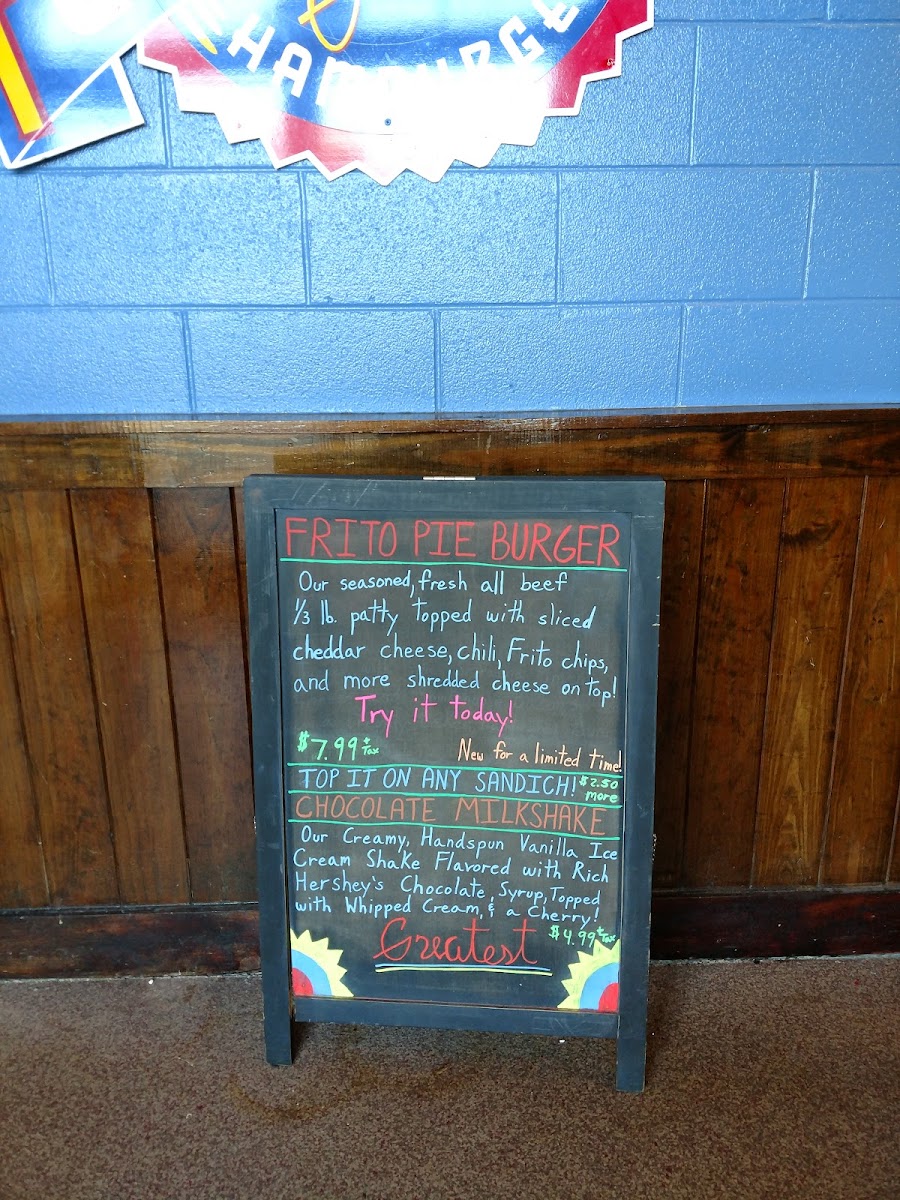 HAMBURGE
FRITO PIE BURGER
Our seasoned, fresh all beef
1/3 lb. patty topped with sliced
cheddar cheese, chili, Frito chips,
and more shredded cheese on top!
Try it today!
$7.99 + Tax
New for a limited time!
TOP IT ON ANY SANDICH! $2.50 more
CHOCOLATE MILKSHAKE
Our Creamy, Handspun Vanilla Ice
Cream Shake Flavored with Rich
Hershey's Chocolate, Syrup, Topped
with Whipped Cream, & a Cherry!
$4.99 + Tax
Greatest